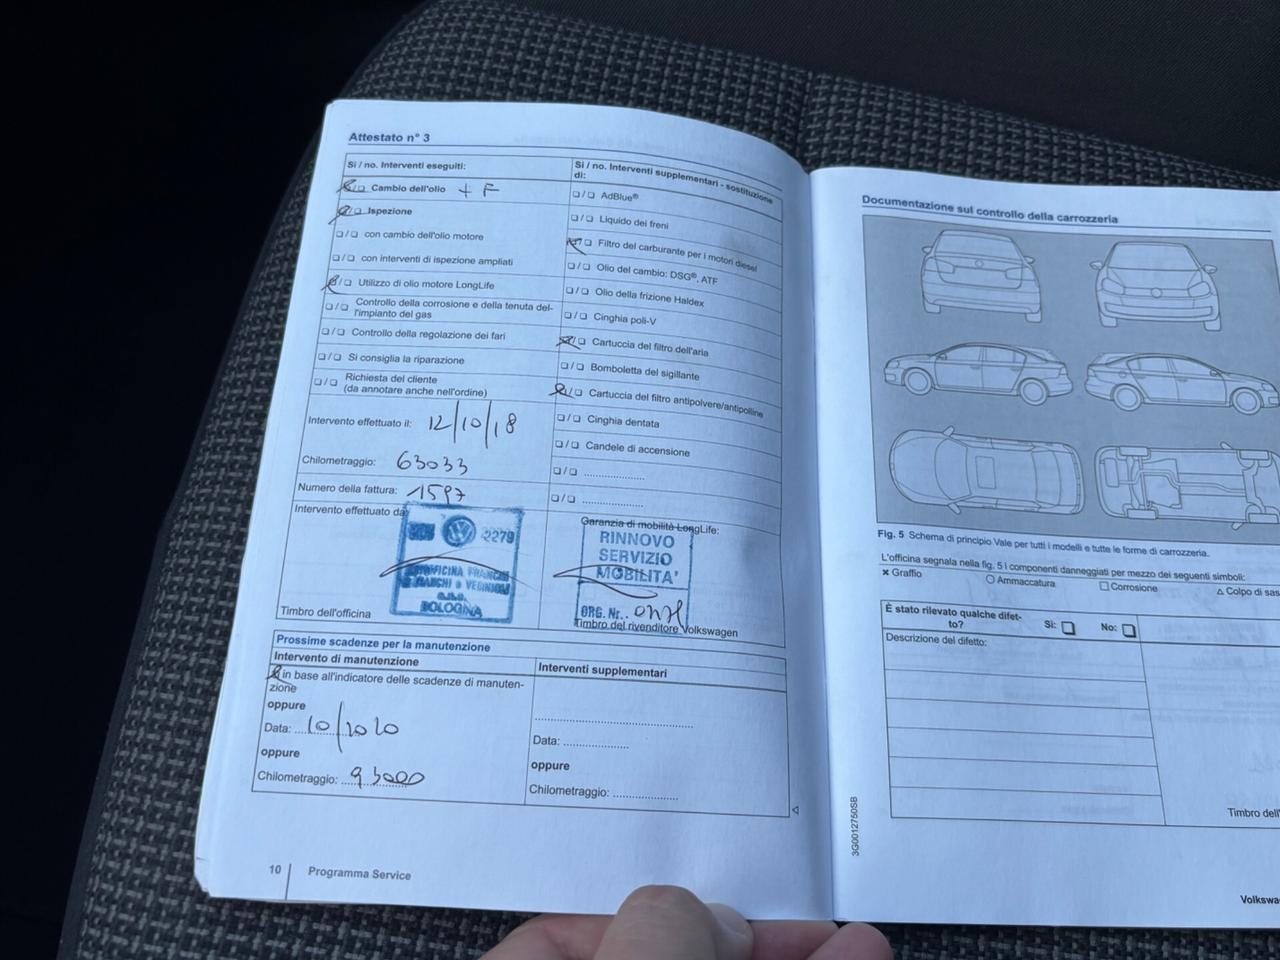 Attestato n° 3
Si / no. Interventi eseguiti:
Cambio dell'olio + F
Ispezione
con cambio dell'olio motore
con interventi di ispezione ampliati
Utilizzo di olio motore LongLife
Controllo della corrosione e della tenuta del-
l'impianto del gas
Controllo della regolazione dei fari
Si consiglia la riparazione
Richiesta del cliente
(da annotare anche nell'ordine)
Intervento effettuato il: 12/10/18
Chilometraggio: 63033
Numero della fattura: 1597
Intervento effettuato da
2279
BOLOGNA
Timbro dell'officina
Si / no. Interventi supplementari - sostituzione
di:
AdBlue®
Liquido dei freni
Filtro del carburante per i motori diesel
Olio del cambio: DSG®, ATF
Olio della frizione Haldex
Cinghia poli-V
Cartuccia del filtro dell'aria
Bomboletta del sigillante
Cartuccia del filtro antipolvere/antipolline
Cinghia dentata
Candele di accensione
Garanzia di mobilità LongLife:
RINNOVO
SERVIZIO
MOBILITA'
ORG. Nr.
Timbro del rivenditore Volkswagen
Prossime scadenze per la manutenzione
Intervento di manutenzione
in base all'indicatore delle scadenze di manuten-
zione
oppure
Data: 10/2020
oppure
Chilometraggio: 93000
Interventi supplementari
Data:
oppure
Chilometraggio:
10 Programma Service
Documentazione sul controllo della carrozzeria
Fig. 5 Schema di principio Vale per tutti i modelli e tutte le forme di carrozzeria.
L'officina segnala nella fig. 5 i componenti danneggiati per mezzo dei seguenti simboli:
Graffio Ammaccatura Corrosione Colpo di sas
È stato rilevato qualche difet-
to? Si: No:
Descrizione del difetto:
Timbro dell'
3G0012750SB
Volkswa